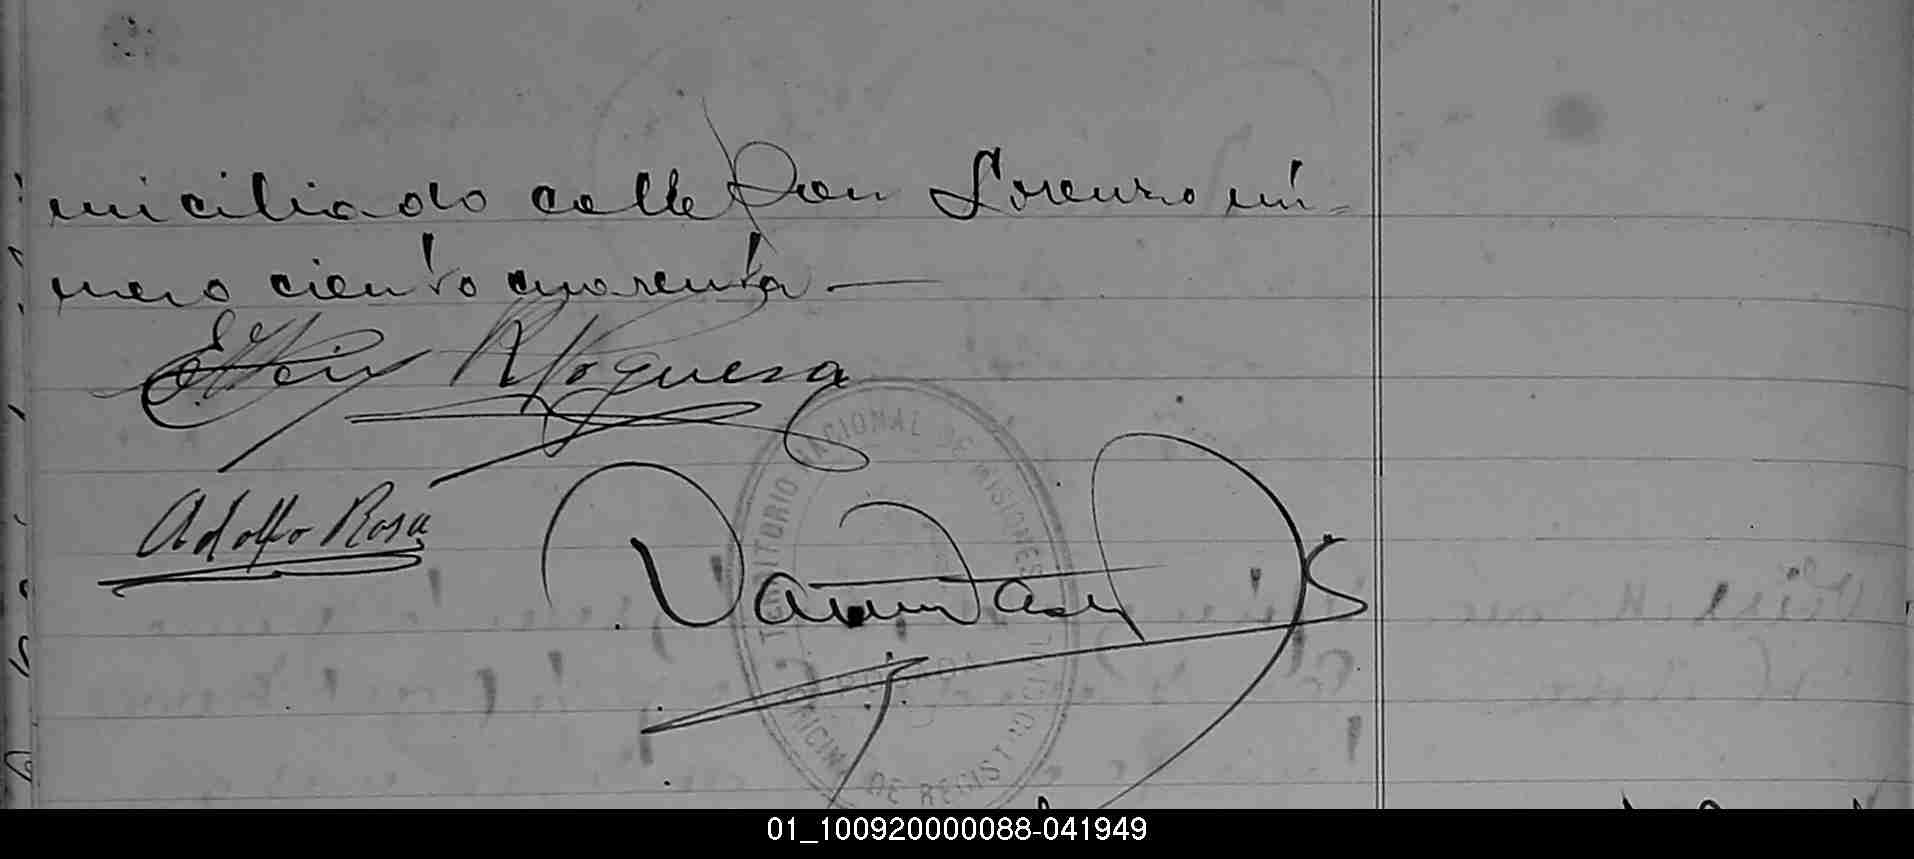 miciliado calle San Lorenzo nú-
mero ciento cuarenta —
R Noguera
Adolfo Rosa
TERRITORIO NACIONAL DE MISIONES
OFICINA DE REGISTRO CIVIL
01_100920000088-041949